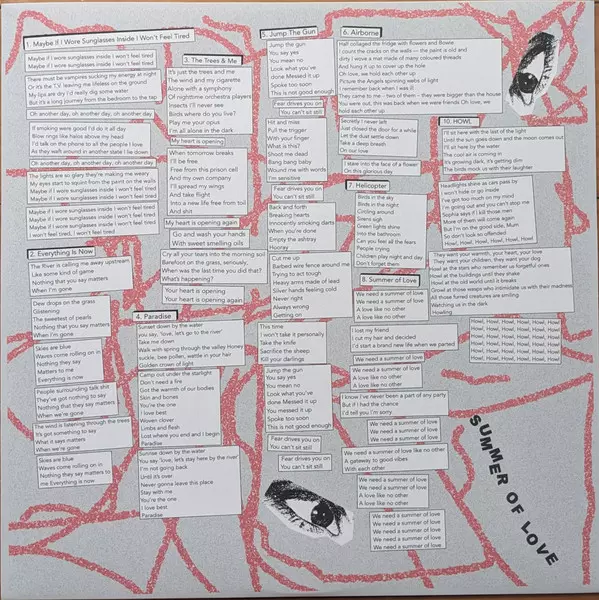 1. Maybe If I Wore Sunglasses Inside I Won't Feel Tired
Maybe if I wore sunglasses inside I won't feel tired
Maybe if I wore sunglasses inside I won't feel tired
There must be vampires sucking my energy at night
Or it's the T.V. leaving me lifeless on the ground
My lips are dry I'd really dig some water
But it's a long journey from the bedroom to the tap
Oh another day, oh another day, oh another day
If smoking were good I'd do it all day
Blow rings like halos above my head
I'd talk on the phone to all the people I love
As they waft around in another state I lie down
Oh another day, oh another day, oh another day
The lights are so glary they're making me weary
My eyes start to squint from the paint on the walls
Maybe if I wore sunglasses inside I won't feel tired
Maybe if I wore sunglasses inside I won't feel tired
Maybe if I wore sunglasses inside I won't feel tired
Maybe if I wore sunglasses inside I won't feel tired
Maybe if I wore sunglasses inside I won't feel tired
I won't feel tired, I won't feel tired
2. Everything Is Now
The River is calling me away upstream
Like some kind of game
Nothing that you say matters
When I'm gone
Dew drops on the grass
Glistening
The sweetest of pearls
Nothing that you say matters
When I'm gone
Skies are blue
Waves come rolling on in
Nothing they say
Matters to me
Everything is now
People surrounding talk shit
They've got nothing to say
Nothing that they say matters
When we're gone
The wind is listening through the trees
It's got something to say
What it says matters
When we're gone
Skies are blue
Waves come rolling on in
Nothing they say matters to
me Everything is now
3. The Trees & Me
It's just the trees and me
The wind and my cigarette
Alone with a symphony
Of nighttime orchestra players
Insects I'll never see
Birds where do you live?
Play me your opus
I'm all alone in the dark
My heart is opening
When tomorrow breaks
I'll be free
Free from this prison cell
And my own company
I'll spread my wings
And take flight
Into a new life free from toil
And shit
My heart is opening again
Go and wash your hands
With sweet smelling oils
Cry all your tears into the morning soil
Barefoot on the grass, seriously,
When was the last time you did that?
What's happening?
Your heart is opening
Your heart is opening again
4. Paradise
Sunset down by the water
you say, 'love, let's go to the river'
Take me down
Walk with spring through the valley Honey
suckle, bee pollen, wattle in your hair
Golden crown of light
Camp out under the starlight
Don't need a fire
Got the warmth of our bodies
Skin and bones
You're the one
I love best
Woven clover
Limbs and flesh
Lost where you end and I begin
Paradise
Sunset down by the water
You say, 'love, let's stay here by the river'
I'm not going back
Until it's over
Never gonna leave this place
Stay with me
You're the one
I love best
Paradise
5. Jump The Gun
Jump the gun
You say yes
You mean no
Look what you've
done Messed it up
Spoke too soon
This is not good enough
Fear drives you on
You can't sit still
Hit and mile
Pull the trigger
With your finger
What is this?
Shoot me dead
Bang bang baby
Wound me with words
I'm sensitive
Fear drives you on
You can't sit still
Back and forth
Breaking hearts
Innocently smoking darts
When you're done
Empty the ashtray
Honray
Cut me up
Barbed wire fence around me
Trying to act tough
Heavy arms made of lead
Silver hands feeling cold
Never right
Always wrong
Getting on
This time
I won't take it personally
Take the knife
Sacrifice the sheep
Kill your darlings
Jump the gun
You say yes
You mean no
Look what you've
done Messed it up
You messed it up
Spoke too soon
This is not good enough
Fear drives you on
You can't sit still
Fear drives you on
You can't sit still
6. Airborne
Hall collaged the fridge with flowers and flowie
I count the cracks on the walls — the paint is old and
dirty I wove a mat made of many coloured threads
And hung it up to cover up the hole
Oh love, we hold each other up
Picture the Angels spinning webs of light
I remember back when I was II
They came to me – two of them – they were bigger than the house
You were out, this was back when we were friends Oh love, we
hold each other up
Secretly I never left
Just closed the door for a while
Let the dust settle down
Take a deep breath
On our love
I stare into the face of a flower
On this glorious day
7. Helicopter
Birds in the sky
Birds in the night
Circling around
Silent sigh
Green lights shine
Into the bathroom
Can you feel all the fears
People crying
Children play night and day
Don't forget them
8. Summer of Love
We need a summer of love
We need a summer of love
A love like no other
A love like no other
I lost my friend
I cut my hair and decided
I'd start a brand new life when we parted
We need a summer of love
We need a summer of love
A love like no other
A love like no other
I know I've never been a part of any party
But if I had the chance
I'd tell you I'm sorry
We need a summer of love
We need a summer of love
We need a summer of love like no other
A gateway to good vibes
With each other
We need a summer of love
We need a summer of love
A love like no other
A love like no other
We need a summer of love
We need a summer of love
We need a summer of love
We need a summer of love
10. HOWL
I'll sit here with the last of the light
Until the sun goes down and the moon comes out
I'll sit here by the water
The cool air is coming in
It's growing dark, it's getting dim
The birds mock us with their laughter
Headlights shine as cars pass by
I won't hide or go inside
I've got too much on my mind
I'm going out and you can't stop me
Sophia says if I kill those men
More of them will come again
But I'm on the good side, Mum
So don't look so offended
Howl, Howl, Howl, Howl, Howl, Howl
They want your warmth, your heart, your love
They want your children, they want your dog
Howl at the stars who remember us forgetful ones
Howl at the buildings until they shake
Howl at the old world until it breaks
Growl at those creeps who intimidate us with their madness
All those famed creatures are smiling
Watching us in the dark
Howling
Howl, Howl, Howl, Howl, Howl, Howl
Howl, Howl, Howl, Howl, Howl, Howl
Howl, Howl, Howl, Howl, Howl, Howl
Howl, Howl, Howl, Howl, Howl, Howl
Howl, Howl, Howl, Howl, Howl, Howl
SUMMER OF LOVE